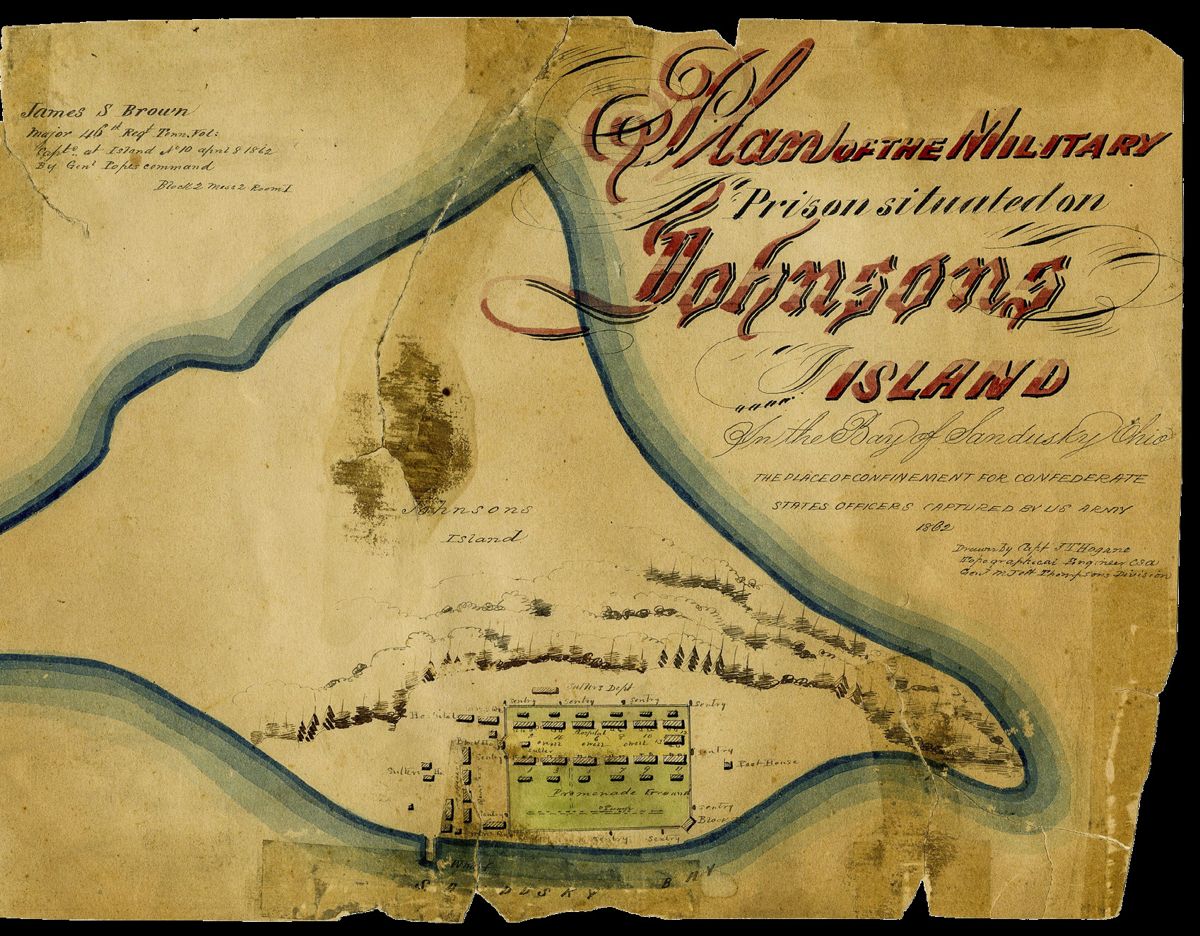 James S Brown
Major 46th Regt Tenn. Vol:
Captd at Island No 10 april 8 1862
By Genl Popes command
Block 2 Mess 2 Room 1
Plan OF THE MILITARY
Prison situated on
Johnsons
ISLAND
In the Bay of Sandusky Ohio
THE PLACE OF CONFINEMENT FOR CONFEDERATE
STATES OFFICERS CAPTURED BY US ARMY
1862
Drawn by Capt J T Hogane
Topographical Engineer CSA
Genl M Jeff Thompsons Division
Johnsons
Island
Sutlers Dept
Sentry Sentry Sentry Sentry
Hospital
well well well
Sentry Sentry
Sutler
Post House
Promenade Ground
Sentry
Sentry
Block
Sentry Sentry
Wharf
BAY